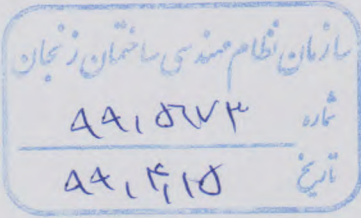 سازمان نظام مهندسی ساختمان زنجان
شماره ۹۹،۵۶۷۳
تاریخ ۹۹،۴،۱۵